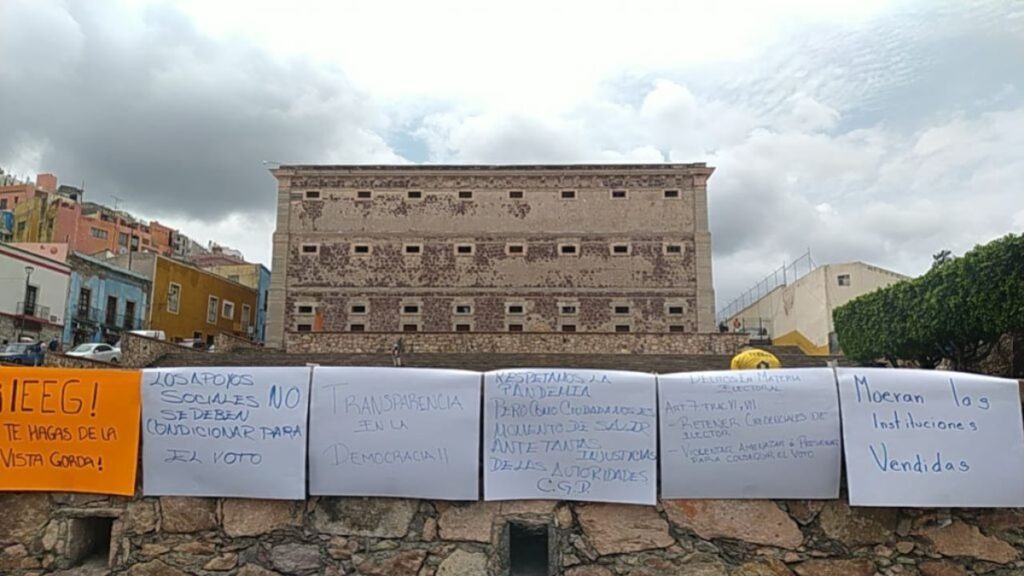 ¡IEEG!
TE HAGAS DE LA
VISTA GORDA!
LOS APOYOS
SOCIALES NO
SE DEBEN
CONDICIONAR PARA
EL VOTO
TRANSPARENCIA
EN LA
DEMOCRACIA!!
RESPETAMOS LA
PANDEMIA
PERO COMO CIUDADANOS ES
MOMENTO DE SALIR
ANTE TANTAS INJUSTICIAS
DE LAS AUTORIDADES
C.G.D.
DELITOS EN MATERIA
ELECTORAL
ART 7 FRAC VI, VII
- RETENER CREDENCIALES DE
ELECTOR
- VIOLENTAR, AMENAZAR Ó PRESIONAR
PARA CONSEGUIR EL VOTO
Mueran las
Instituciones
Vendidas